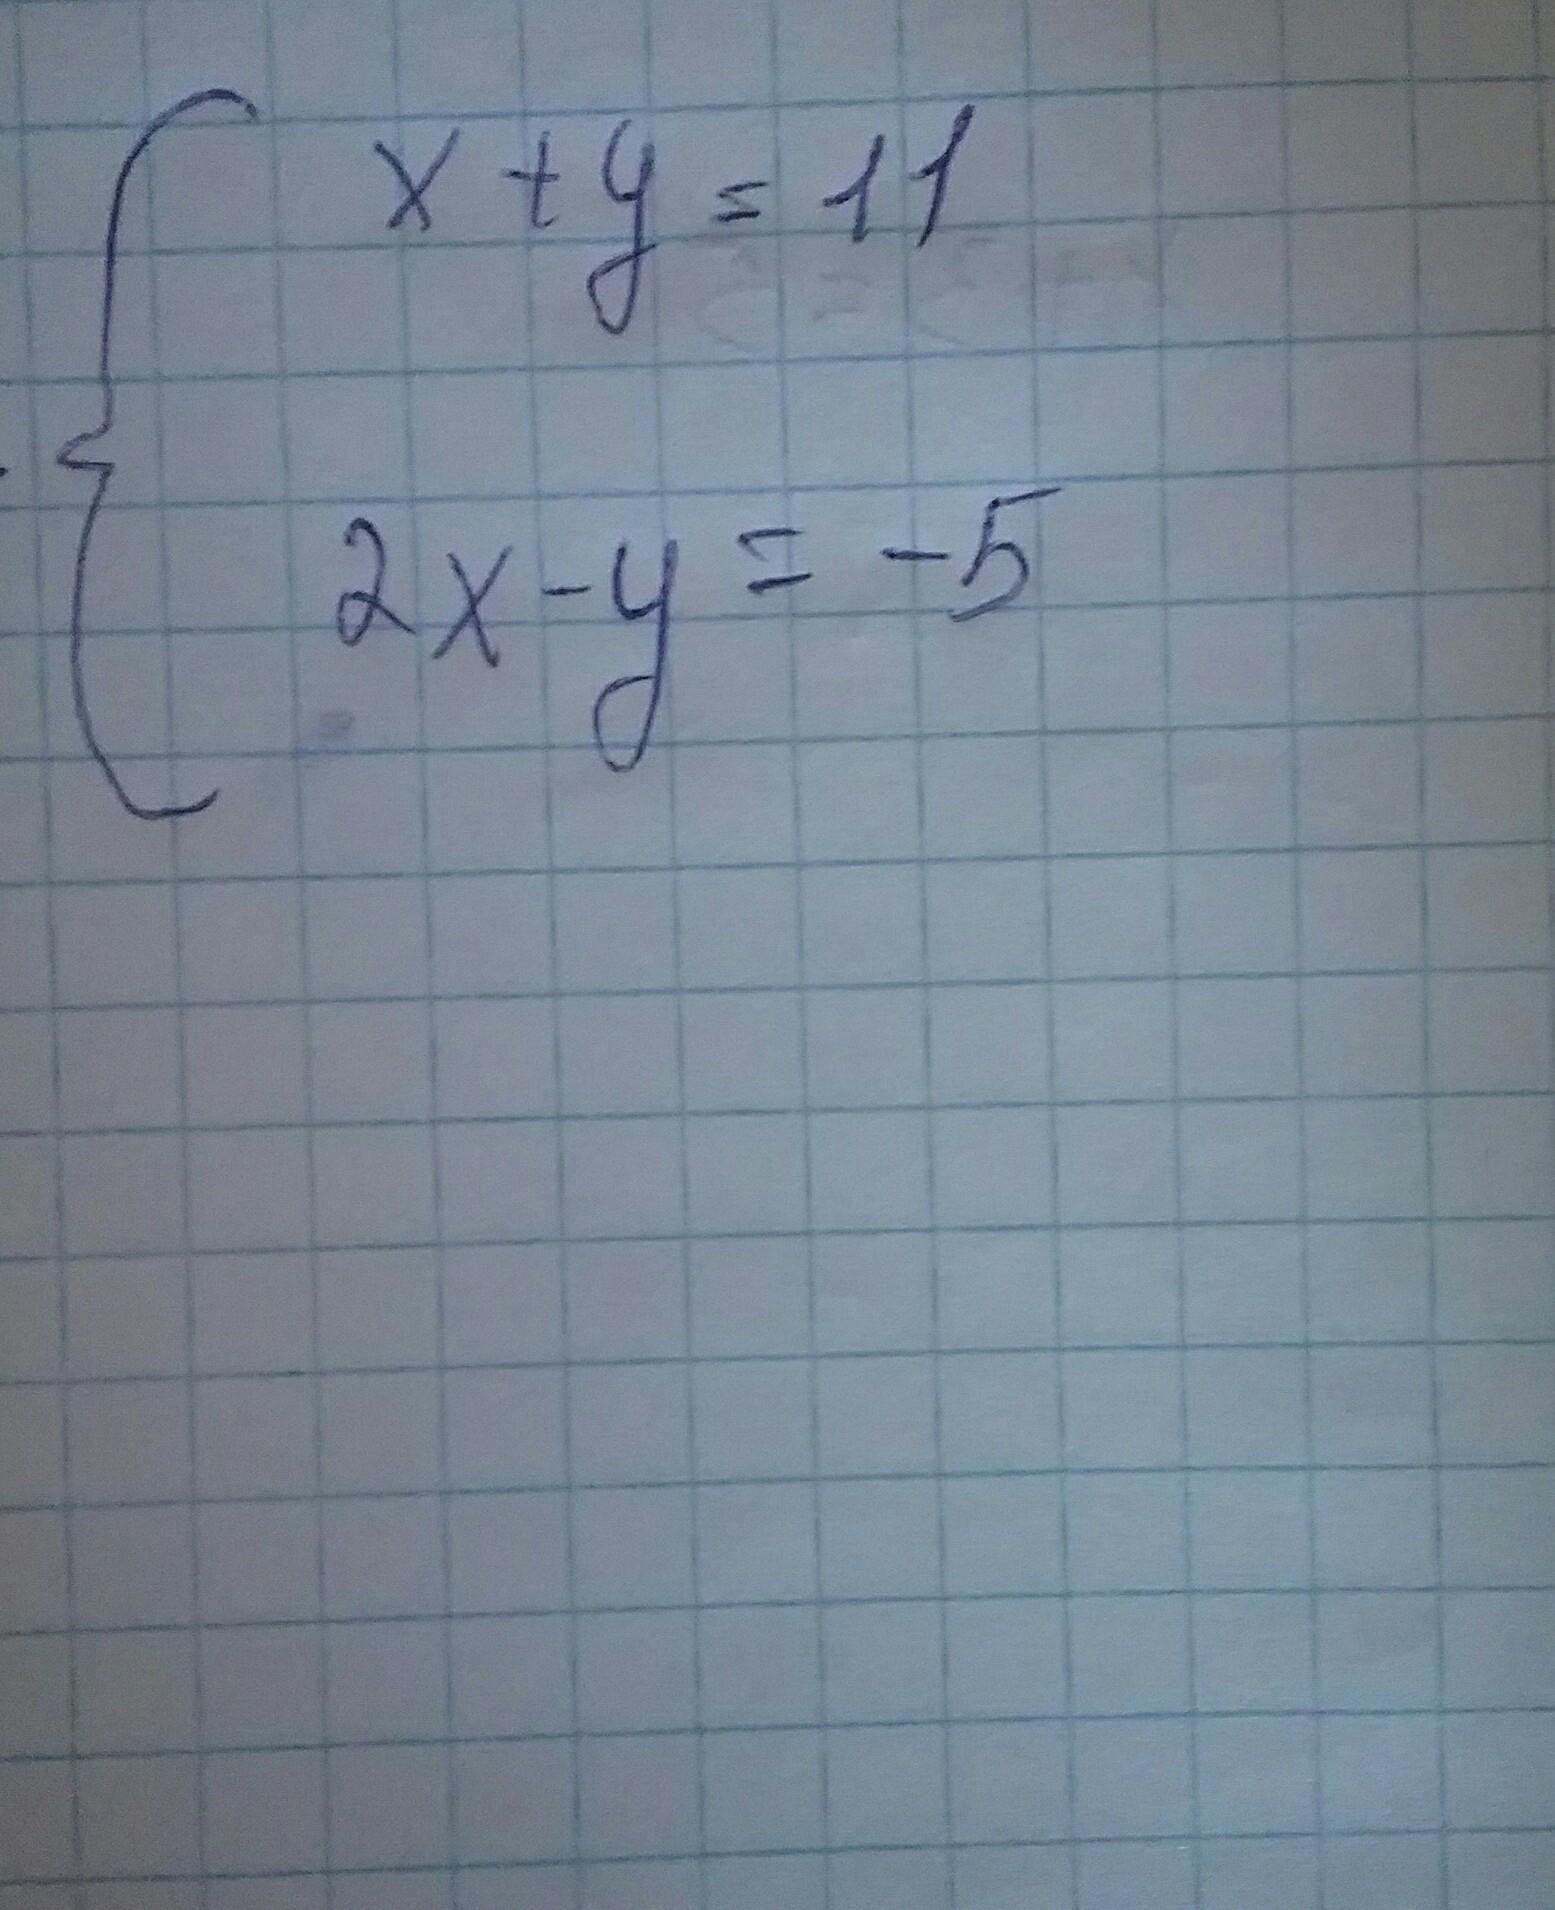 x + y = 11
2x - y = -5